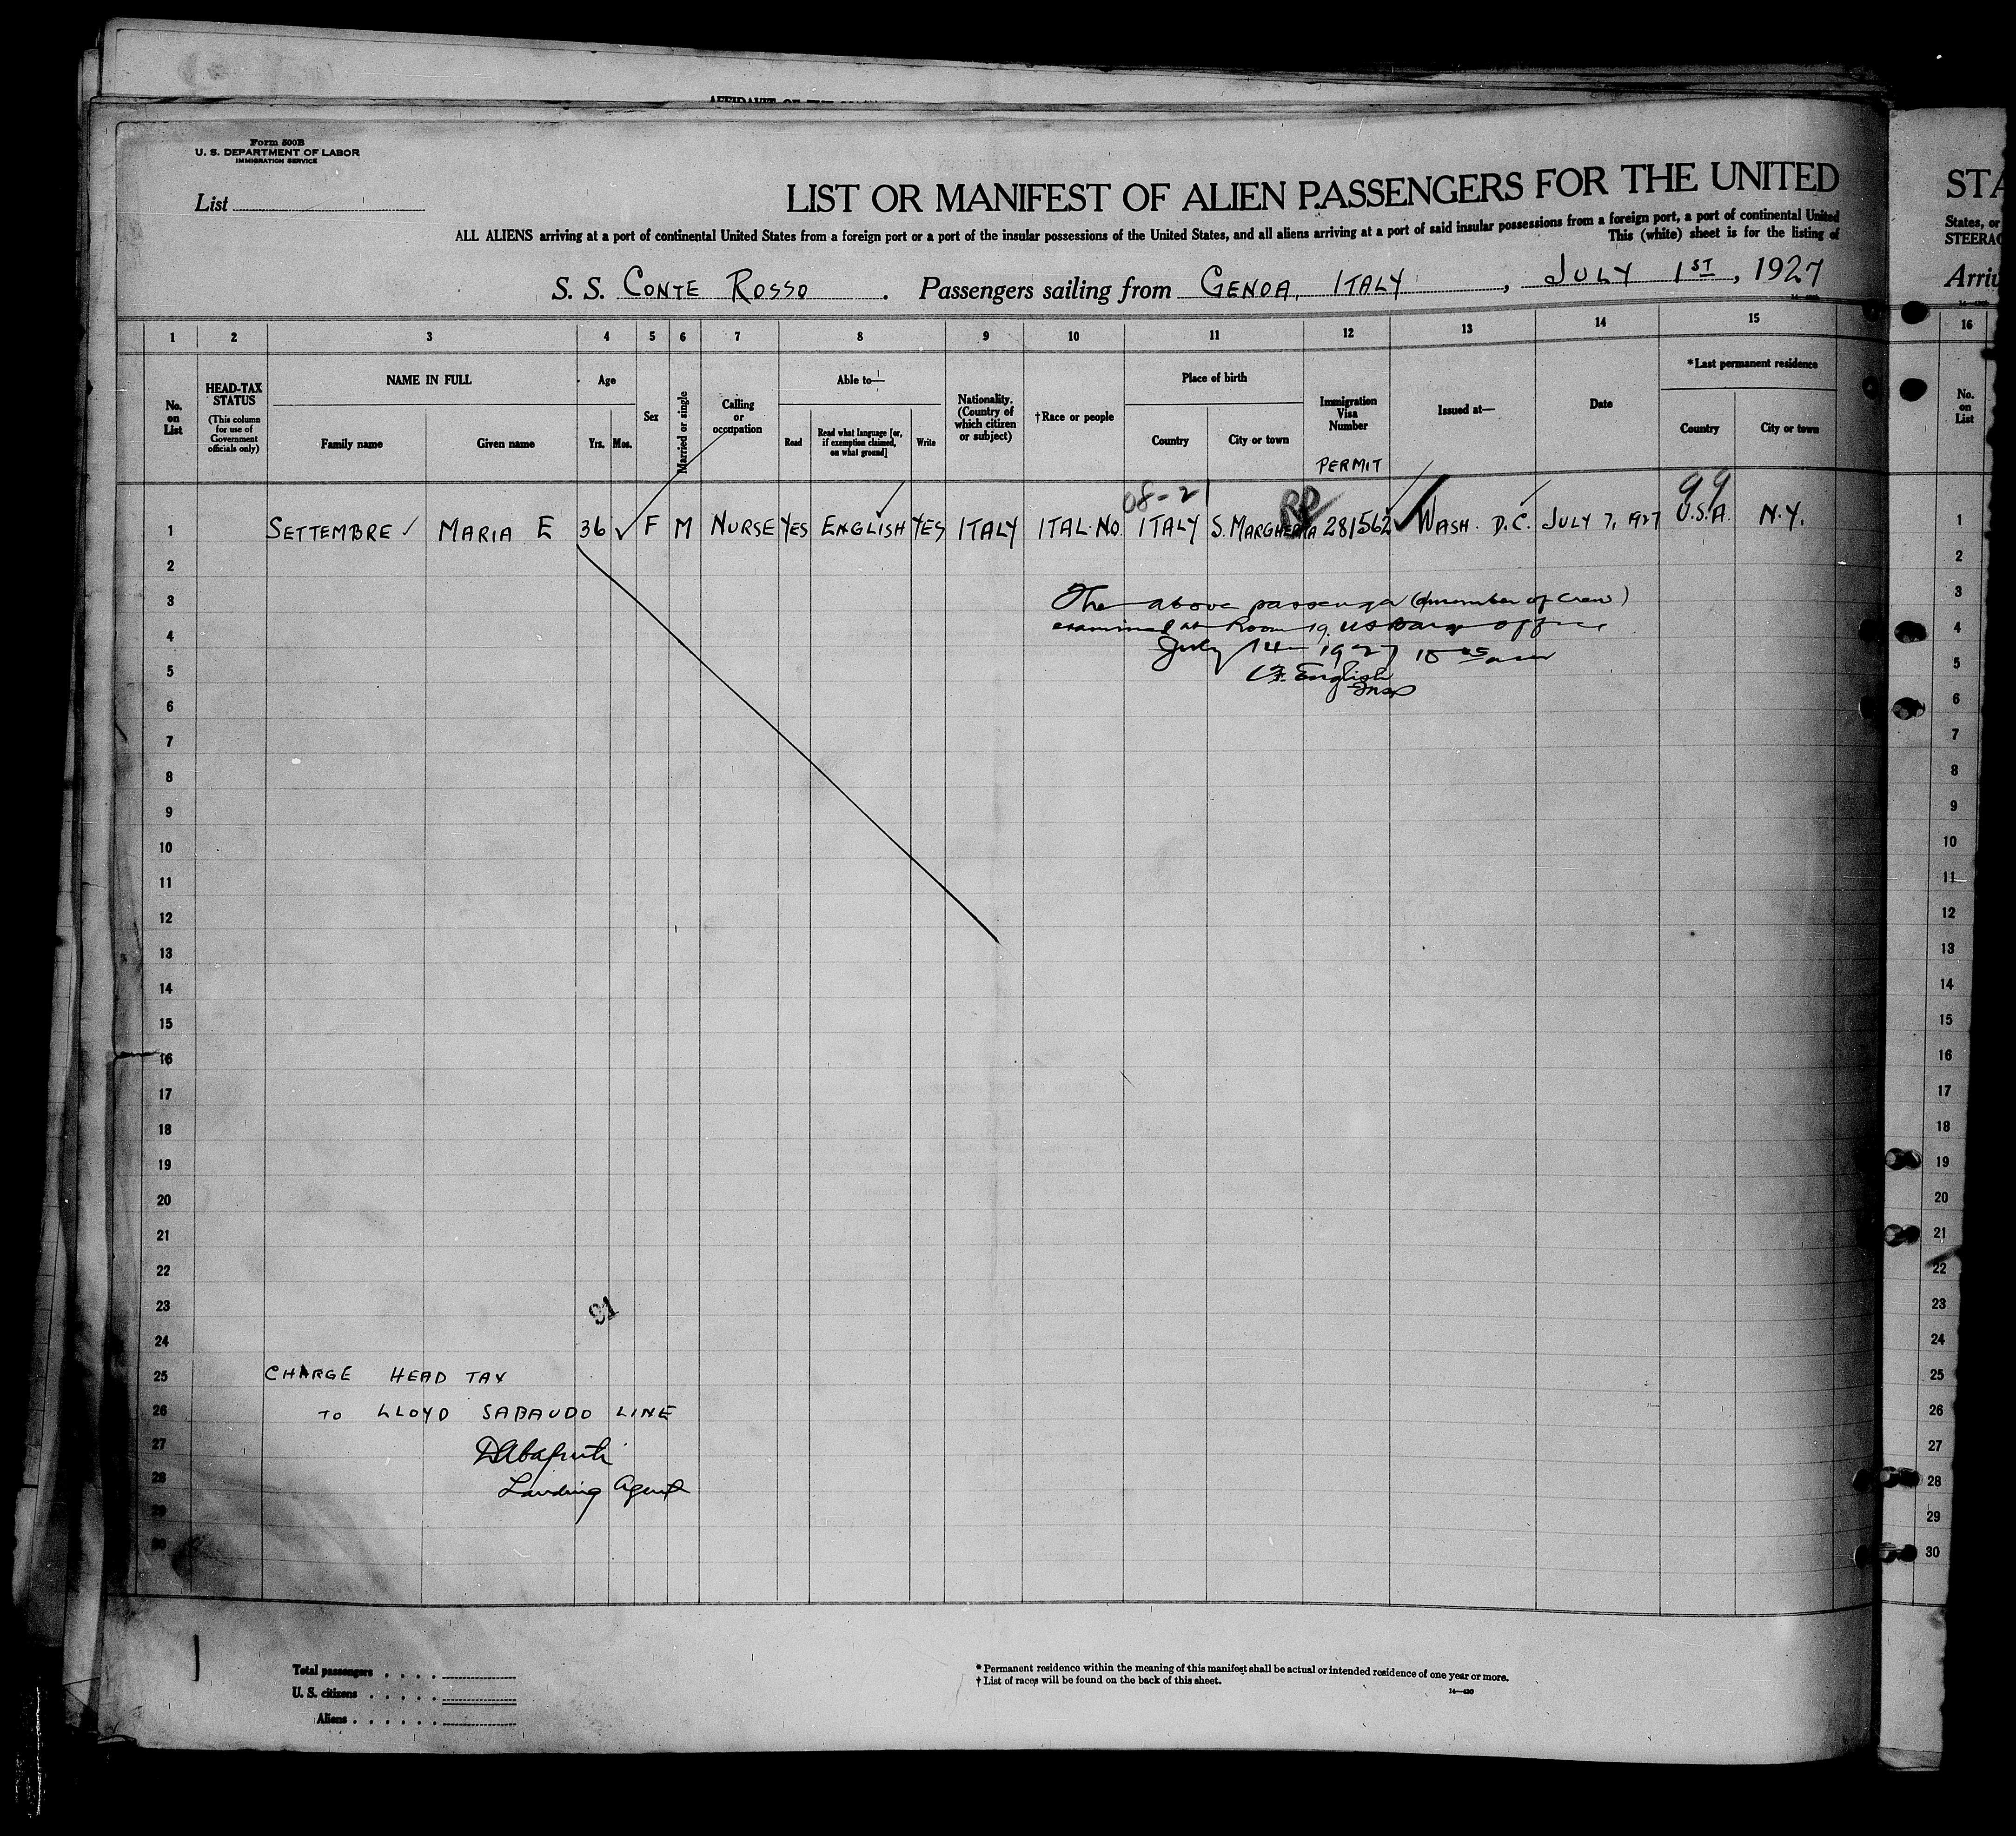 AFFIDAVIT OF THE
Form 500B
U. S. DEPARTMENT OF LABOR
IMMIGRATION SERVICE
List
LIST OR MANIFEST OF ALIEN PASSENGERS FOR THE UNITED
STA
ALL ALIENS arriving at a port of continental United States from a foreign port or a port of the insular possessions of the United States, and all aliens arriving at a port of said insular possessions from a foreign port, a port of continental United
States, or
This (white) sheet is for the listing of
STEERAG
S. S. CONTE ROSSO . Passengers sailing from GENOA, ITALY , JULY 1ST, 1927
Arriv
1 2 3 4 5 6 7 8 9 10 11 12 13 14 15 16
No. on List
HEAD-TAX STATUS
(This column for use of Government officials only)
NAME IN FULL
Family name Given name
Age
Yrs. Mos.
Sex
Married or single
Calling or occupation
Able to—
Read
Read what language [or, if exemption claimed, on what ground]
Write
Nationality. (Country of which citizen or subject)
†Race or people
Place of birth
Country City or town
Immigration Visa Number
PERMIT
Issued at—
Date
*Last permanent residence
Country City or town
No. on List
08-21
99
1 SETTEMBRE MARIA E 36 F M NURSE YES ENGLISH YES ITALY ITAL. NO. ITALY S. MARGHERITA 281562 WASH. D.C. JULY 7, 1927 U.S.A. N.Y. 1
2 2
3 The above passenger (member of crew) 3
4 examined at Room 19 office 4
July 14 1927
5 English 5
Insp
6 6
7 7
8 8
9 9
10 10
11 11
12 12
13 13
14 14
15 15
16 16
17 17
18 18
19 19
20 20
21 21
22 22
23 23
91
24 24
25 CHARGE HEAD TAX 25
26 TO LLOYD SABAUDO LINE 26
27 27
28 Landing Agent 28
29 29
30 30
Total passengers
U. S. citizens
Aliens
* Permanent residence within the meaning of this manifest shall be actual or intended residence of one year or more.
† List of races will be found on the back of this sheet.
14—430